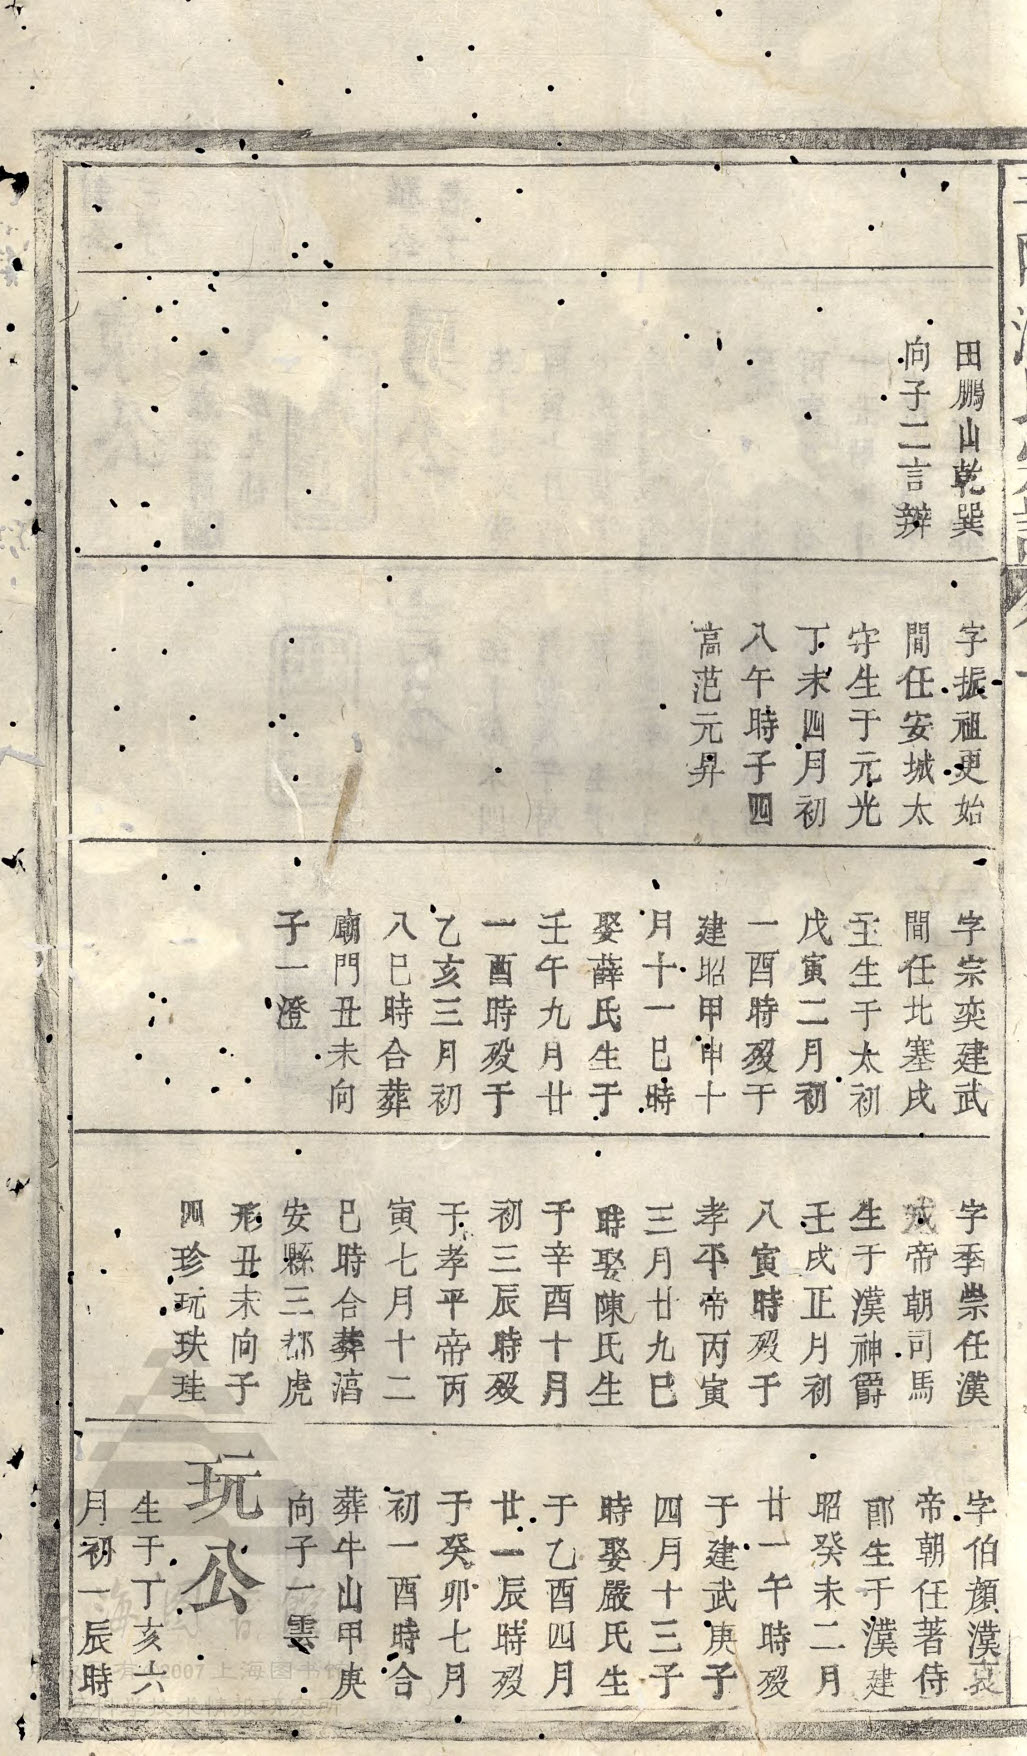 田鵬山乾巽
向子二言辦
字振祖更始
間任安城太
守生于元光
丁未四月初
八午時子四
高范元昇
字宗奕建武
間任北塞戌
主生于太初
戊寅二月初
一酉時歿于
建昭甲申十
月十一巳時
娶薛氏生于
壬午九月廿
一酉時歿于
乙亥三月初
八巳時合葬
廟門丑未向
子一澄
字季崇任漢
成帝朝司馬
生于漢神爵
壬戌正月初
八寅時歿于
孝平帝丙寅
三月廿九巳
時娶陳氏生
于辛酉十月
初三辰時歿
于孝平帝丙
寅七月十二
巳時合葬
安縣三都虎
形丑未向子
四珍玩玞珪
字伯顏漢哀
帝朝任著侍
郎生于漢建
昭癸未二月
廿一午時歿
于建武庚子
四月十三子
時娶嚴氏生
于乙酉四月
廿一辰時歿
于癸卯七月
初一酉時合
葬牛山甲庚
向子一雲
玩公
生于丁亥六
月初一辰時
2007 上海图书馆